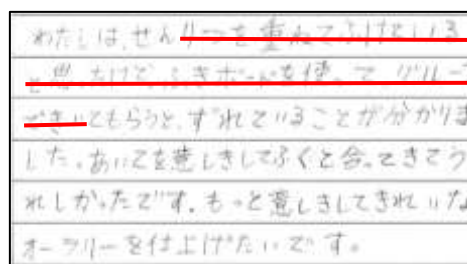 わたしは、せんりつを重ねてふけている
と思ったけど、ふきボードを使って グループ
できいてもらうと、ずれていることが分かりま
した。あいてを意しきしてふくと合ってきてう
れしかったです。もっと意しきしてきれいな
オーラリーを仕上げたいです。